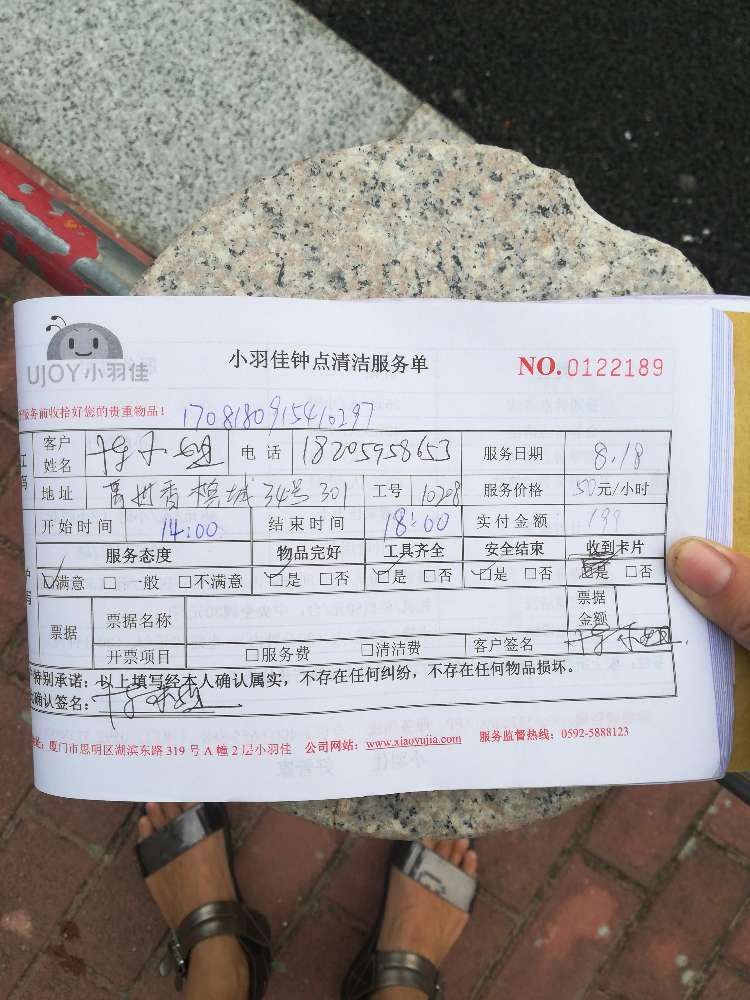 UJOY小羽佳
小羽佳钟点清洁服务单
NO.0122189
服务前收拾好您的贵重物品！
1708180915410297
客户姓名 电话 18205958653 服务日期 8.18
地址 禹州香槟城34号301 工号 10208 服务价格 50元/小时
开始时间 14:00 结束时间 18:00 实付金额 199
服务态度 物品完好 工具齐全 安全结束 收到卡片
☑满意 □一般 □不满意 ☑是 □否 ☑是 □否 ☑是 □否 是 □否
票据 票据名称 票据金额
开票项目 □服务费 □清洁费 客户签名
特别承诺：以上填写经本人确认属实，不存在任何纠纷，不存在任何物品损坏。
确认签名：
厦门市思明区湖滨东路 319 号 A 幢 2 层小羽佳 公司网站：www.xiaoyujia.com 服务监督热线：0592-5888123